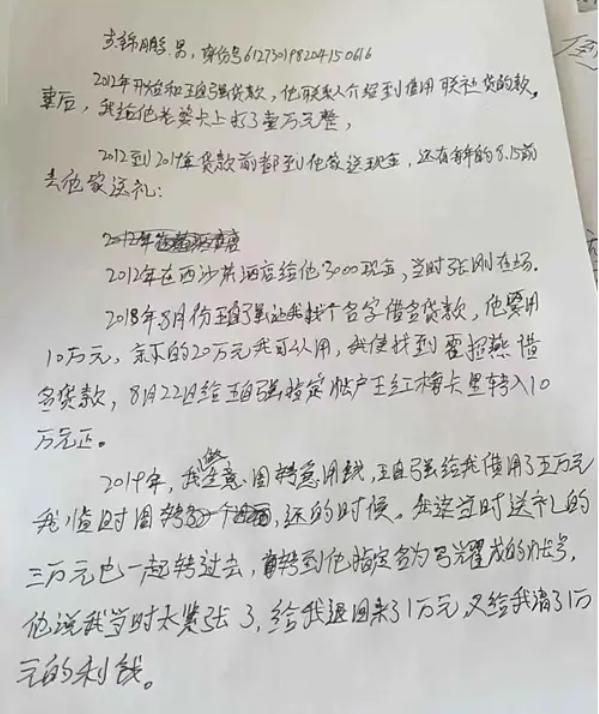 锦鹏, 男, 身份号612730198204150616
2012年开始和王自强贷款, 他联系人介绍到信用联社贷的款,
事后, 我给他老婆卡上打了壹万元整,
2012到2019年贷款前都到他家送现金, 还有每年的8.15前
去他家送礼:
2012年
2012年在西沙 酒店给他3000现金, 当时张刚在场.
2018年8月份王自强让我找个名字借名贷款, 他要用
10万元, 余下的20万元我可以用, 我便找到霍招燕借
名贷款, 8月22日给王自强指定账户王红梅卡里转入10
万元正。
2019年, 我做生意周转急用钱, 王自强给我借用了五万元
我临时周转 , 还的时候。我连当时送礼的
三万元也一起转过去, 转到他指定名为 耀成的账号,
他说我当时太紧张了, 给我退回来了1万元, 又给我清了1万
元的利钱。